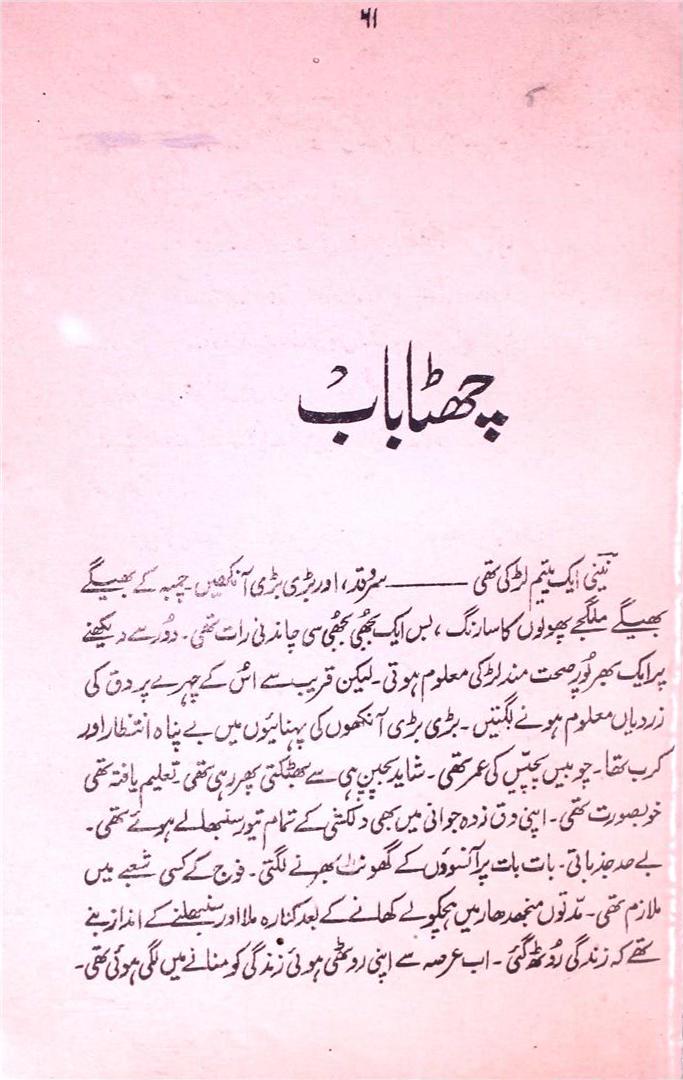 ۶۱
چھٹا باب
نینی ایک یتیم لڑکی تھی ——— سرو قد، اور بڑی بڑی آنکھیں۔ چمپہ کے بھیگے
بھیگے ملگجے پھولوں کا سا رنگ، بس ایک بجھی بجھی سی چاندنی رات تھی۔ دور سے دیکھنے
پر ایک بھرپور صحت مند لڑکی معلوم ہوتی۔ لیکن قریب سے اس کے چہرے پر دق کی
زردیاں معلوم ہونے لگتیں۔ بڑی بڑی آنکھوں کی پہنائیوں میں بے پناہ انتظار اور
کرب تھا۔ چوبیس پچیس کی عمر تھی۔ شاید بچپن ہی سے بھٹکتی پھر رہی تھی۔ تعلیم یافتہ تھی
خوبصورت تھی۔ اپنی دق زدہ جوانی میں بھی دلکشی کے تمام تیور سنبھالے ہوئے تھی۔
بے حد جذباتی۔ بات بات پر آنسوؤں کے گھونٹ بھرنے لگتی۔ فوج کے کسی شعبے میں
ملازم تھی۔ مدتوں منجدھار میں ہچکولے کھانے کے بعد کنارہ ملا اور سنبھلنے کے انداز بنے
تھے کہ زندگی روٹھ گئی۔ اب عرصہ سے اپنی روٹھی ہوئی زندگی کو منانے میں لگی ہوئی تھی۔